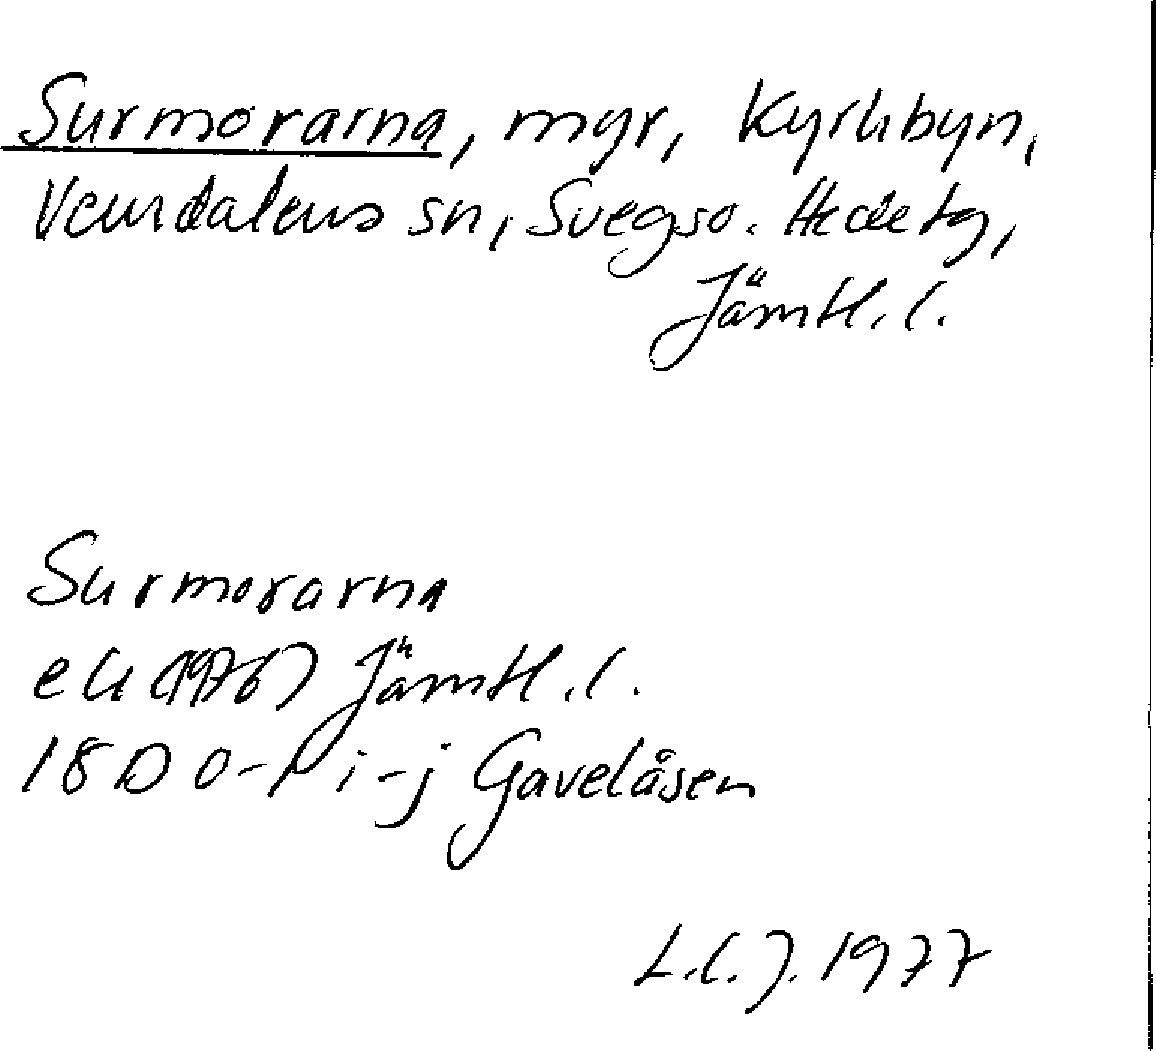 Surmorarna, myr, Kyrkbyn,
Vemdalens sn, Svegs o. Hede tg,
Jämtl. l.
Surmorarna
ek (1976) Jämtl. l.
18D 0-1 i-j Gavelåsen
L.C.J. 1977